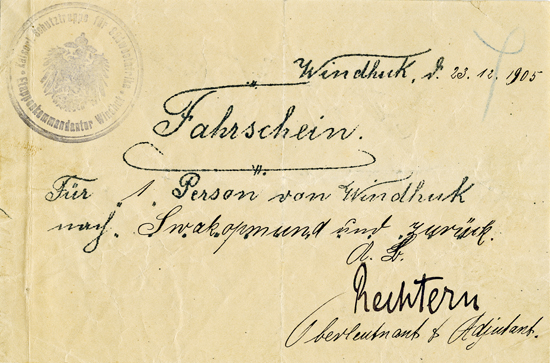 Kaiserl. Schutztruppe für Südwestafrika
Truppenkommandantur Windhuk
Windhuk, d. 23.12.1905
Fahrschein.
Für 1 Person von Windhuk
nach Swakopmund und zurück.
A. B.
Rechtern
Oberleutnant & Adjutant.